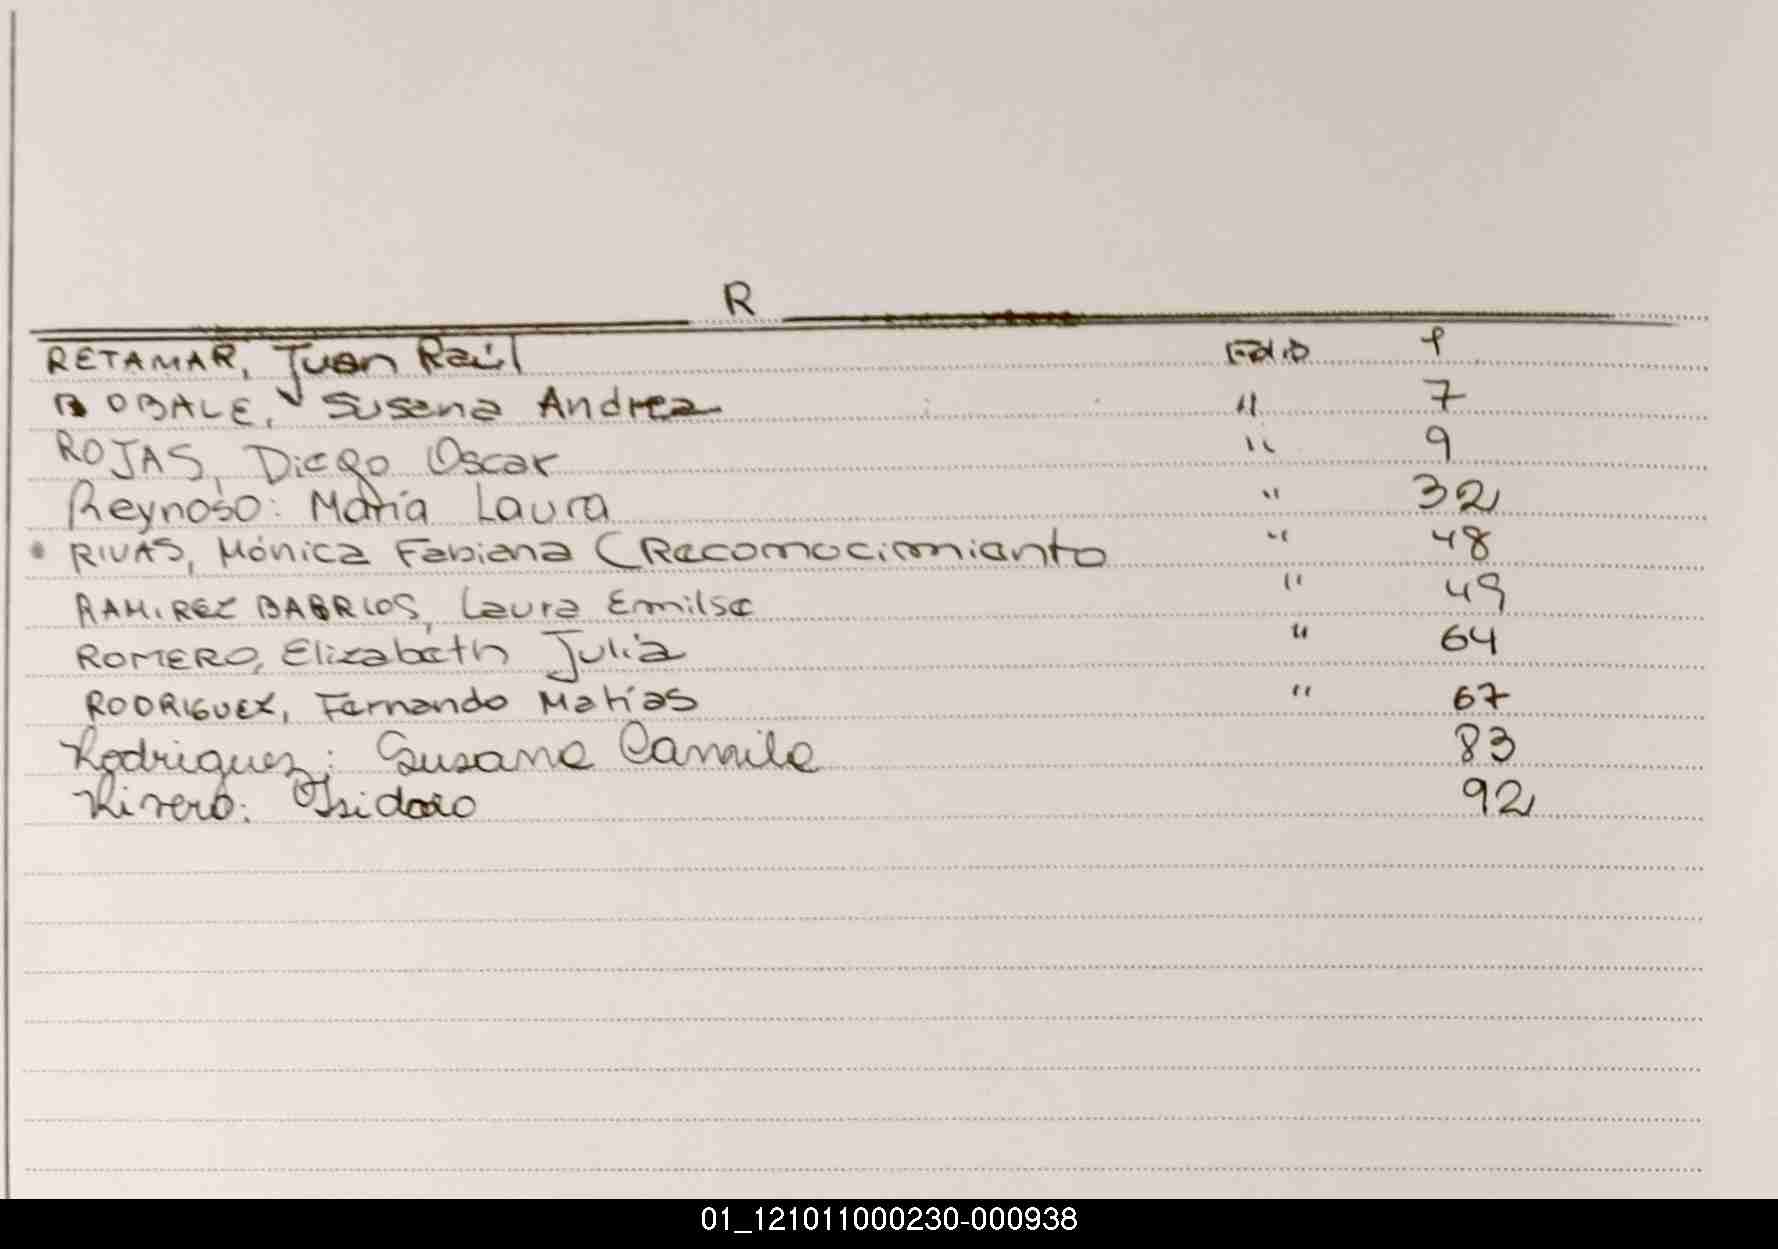 R
RETAMAR, Juan Raúl Folio 1
ROBALE, Susana Andrea " 7
ROJAS, Diego Oscar " 9
Reynoso: María Laura " 32
RIVAS, Mónica Fabiana (Reconocimiento " 48
RAMIREZ BARRIOS, Laura Emilse " 49
ROMERO, Elizabeth Julia " 64
RODRIGUEZ, Fernando Matías " 67
Rodriguez: Susana Camila 83
Rivero: Isidoro 92
01_121011000230-000938